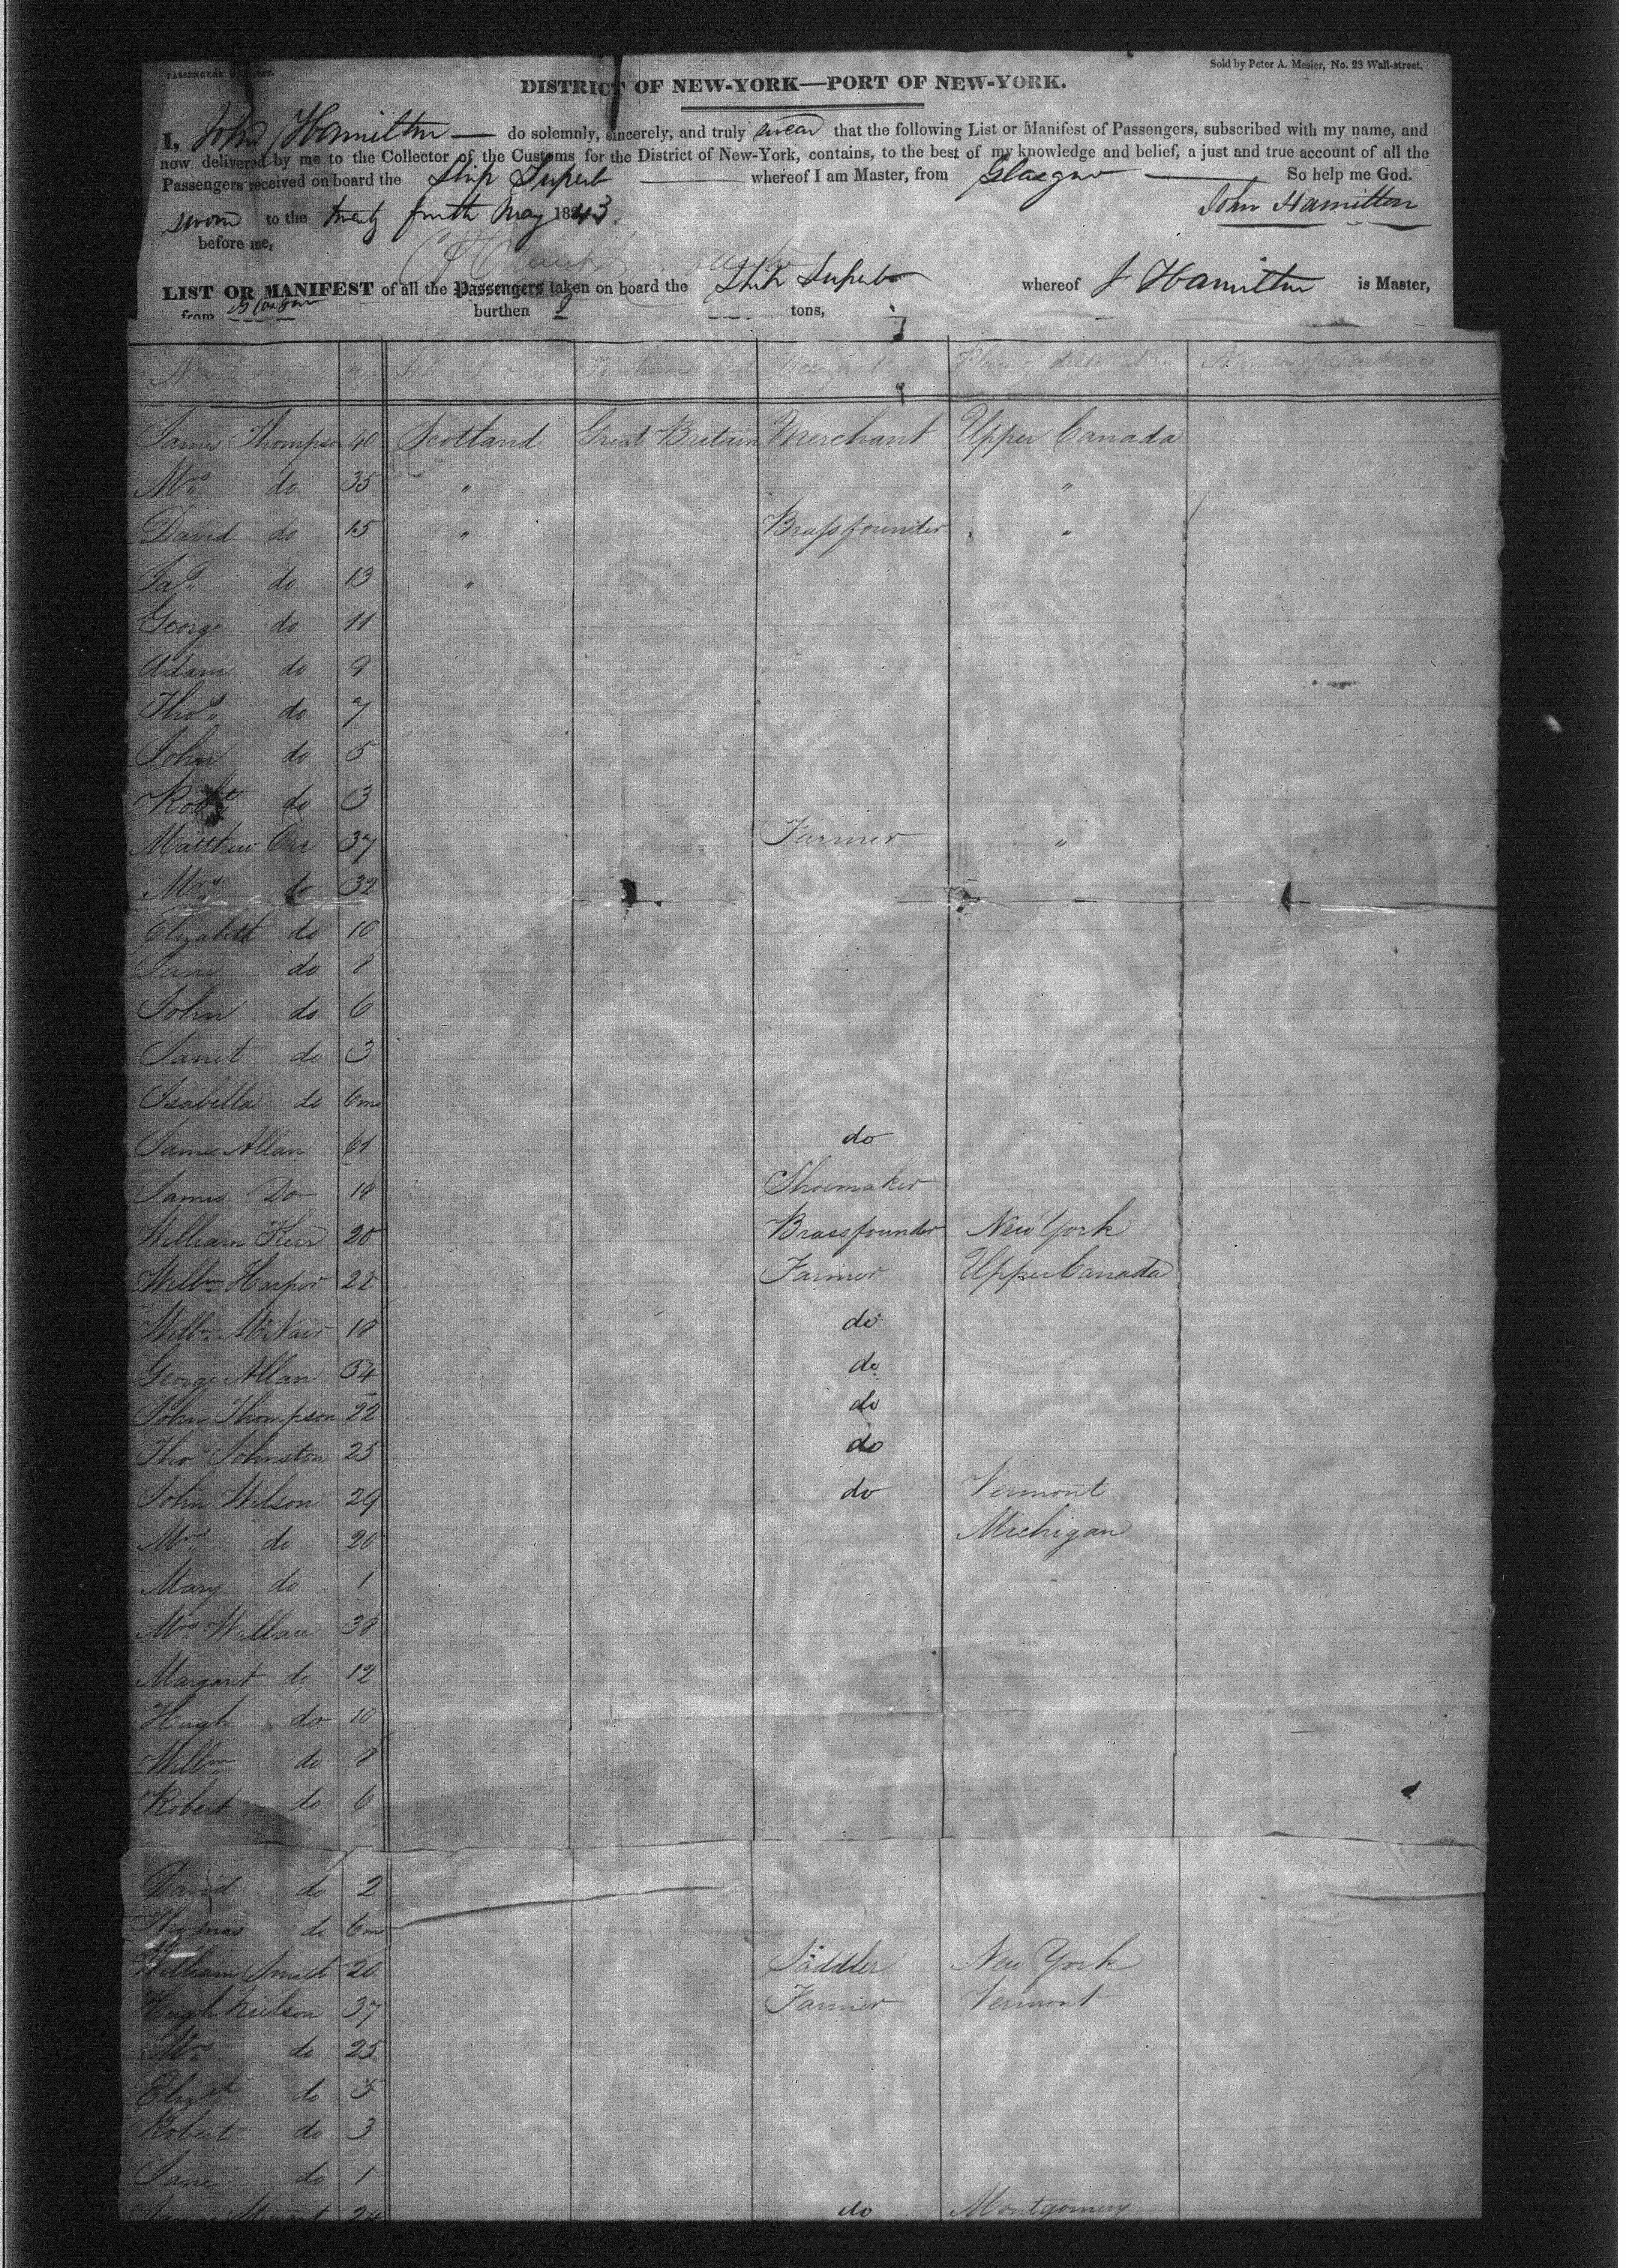 PASSENGERS'
Sold by Peter A. Mesier, No. 28 Wall-street.
DISTRICT OF NEW-YORK—PORT OF NEW-YORK.
I, John Hamilton — do solemnly, sincerely, and truly swear that the following List or Manifest of Passengers, subscribed with my name, and
now delivered by me to the Collector of the Customs for the District of New-York, contains, to the best of my knowledge and belief, a just and true account of all the
Passengers received on board the Ship Superb whereof I am Master, from Glasgow So help me God.
sworn to the twenty fourth May 1843. John Hamilton
before me,
LIST OR MANIFEST of all the Passengers taken on board the Ship Superb whereof J Hamilton is Master,
from Glasgow burthen tons,
Name Age Occupat Place of destination Number of Packages
James Thompson 40 Scotland Great Britain Merchant Upper Canada
Mrs do 35 " "
David do 15 " Brassfounder "
Jas do 13 "
George do 11
Adam do 9
Thos do 7
John do 5
Robt do 3
Matthew Orr 37 Farmer "
Mrs do 32
Elizabeth do 10
Jane do 8
John do 6
Janet do 3
Isabella do 6mo
James Allan 61 do
James Do 18 Shoemaker
William Keir 20 Brassfounder New York
Willm Harper 22 Farmer Upper Canada
Willm McNair 18 do
George Allan 34 do
John Thompson 22 do
Thos Johnston 25 do
John Wilson 29 do Vermont
Mrs do 20 Michigan
Mary do 1
Mrs Wallace 38
Margaret do 12
Hugh do 10
Willm do 8
Robert do 6
David do 2
Thomas do 6mo
William Smith 20 Saddler New York
Hugh Neilson 37 Farmer Vermont
Mrs do 25
Elizth do 5
Robert do 3
Jane do 1
James Stewart 24 do Montgomery